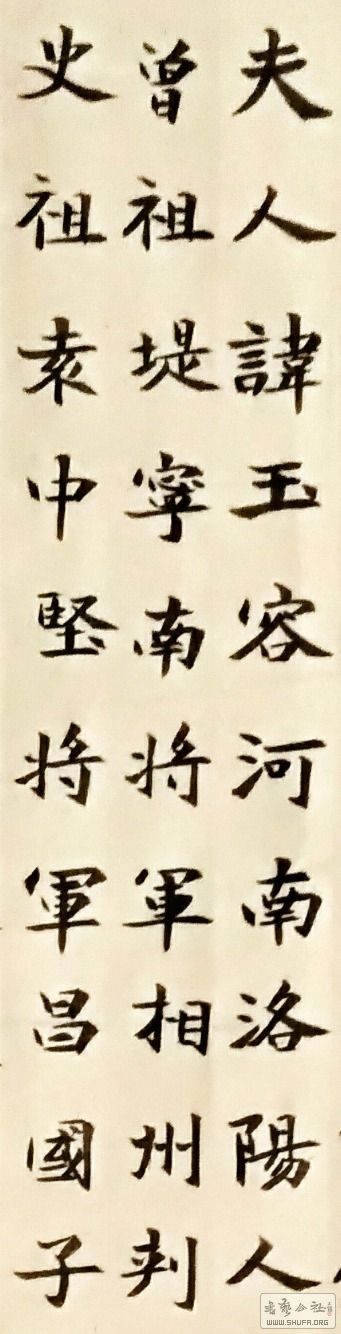 夫人諱玉容河南洛陽人
曾祖堤寧南将軍相州刾
史祖袁中堅将軍昌國子
書藝公社
WWW.SHUFA.ORG